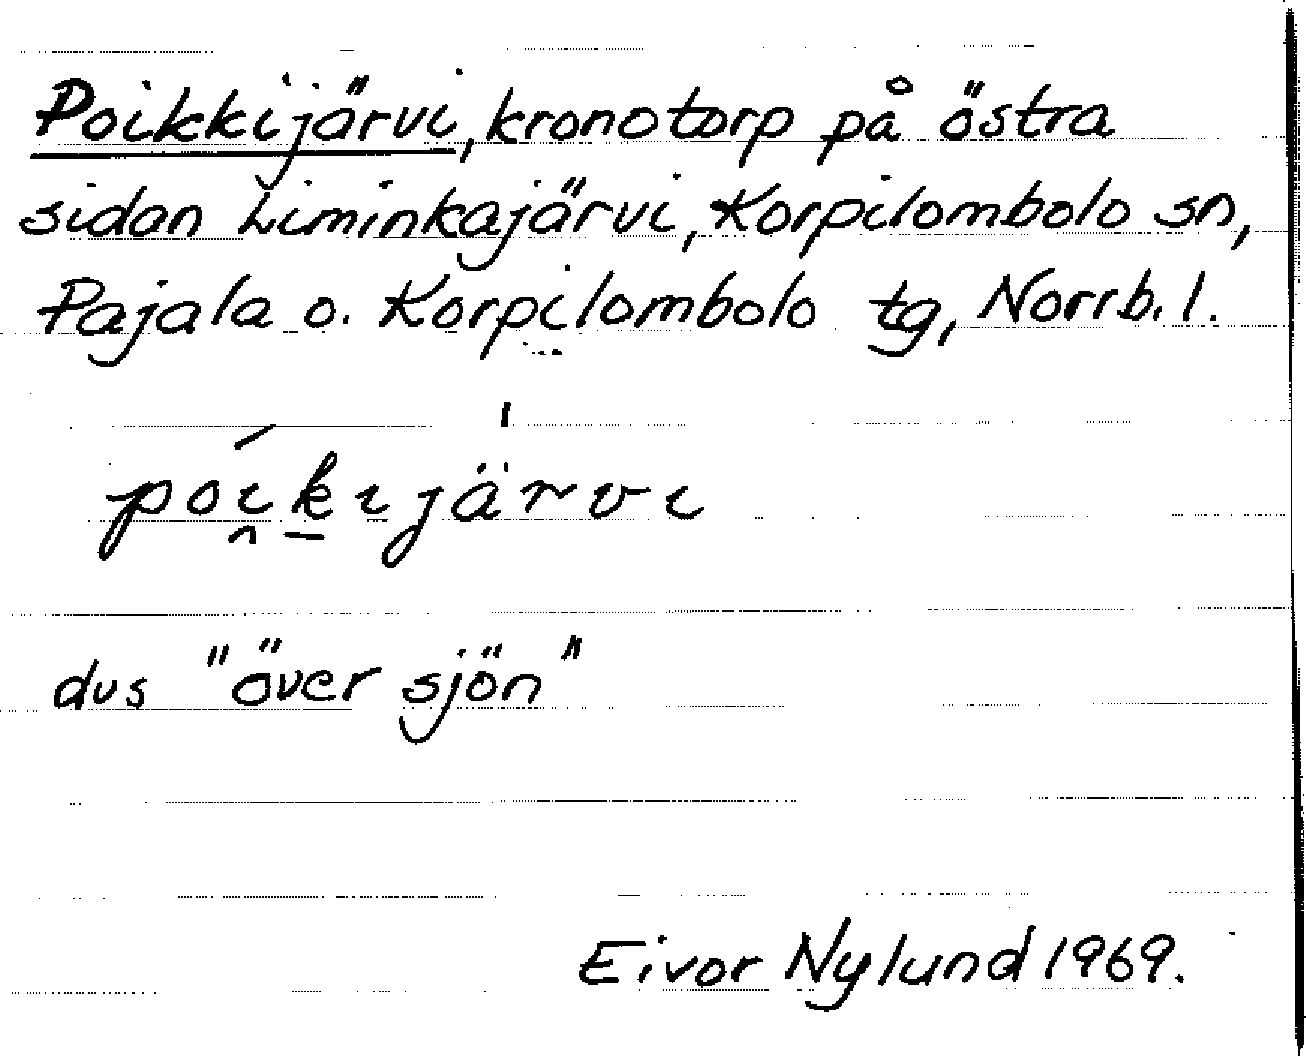 Poikkijärvi, kronotorp på östra
sidan Liminkajärvi, Korpilombolo sn,
Pajala o. Korpilombolo tg, Norrb. l.
pói̯k̲ijä̍rvi
dvs "över sjön"
Eivor Nylund 1969.